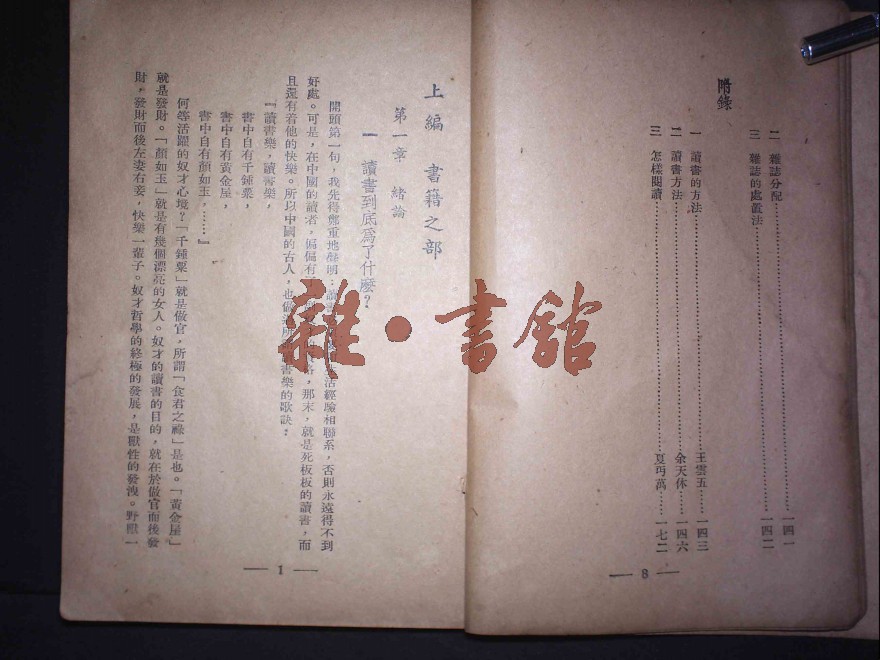 二 雜誌分配…………一四一
三 雜誌的處置法…………一四二
附錄
一 讀書的方法…………王雲五…………一四三
二 讀書方法…………余天休…………一四六
三 怎樣閱讀…………夏丏尊…………一七二
— 8 —
上編 書籍之部
第一章 緒論
一 讀書到底爲了什麼?
開頭第一句,我先得鄭重地聲明:讀書 活經驗相聯系,否則永遠得不到
好處。可是,在中國的讀者,偏偏有 ,那末,就是死板板的讀書,而
且還有着他的快樂。所以中國的古人,也做 讀書樂的歌訣:
『讀書樂,讀書樂,
書中自有千鍾粟,
書中自有黃金屋,
書中自有顏如玉,……』
何等活躍的奴才心境?「千鍾粟」就是做官,所謂「食君之祿」是也。「黃金屋」
就是發財。「顏如玉」就是有幾個漂亮的女人。奴才的讀書的目的,就在於做官而後發
財,發財而後左妻右妾,快樂一輩子。奴才哲學的終極的發展,是獸性的發洩。野獸一
— 1 —
雜·書舘